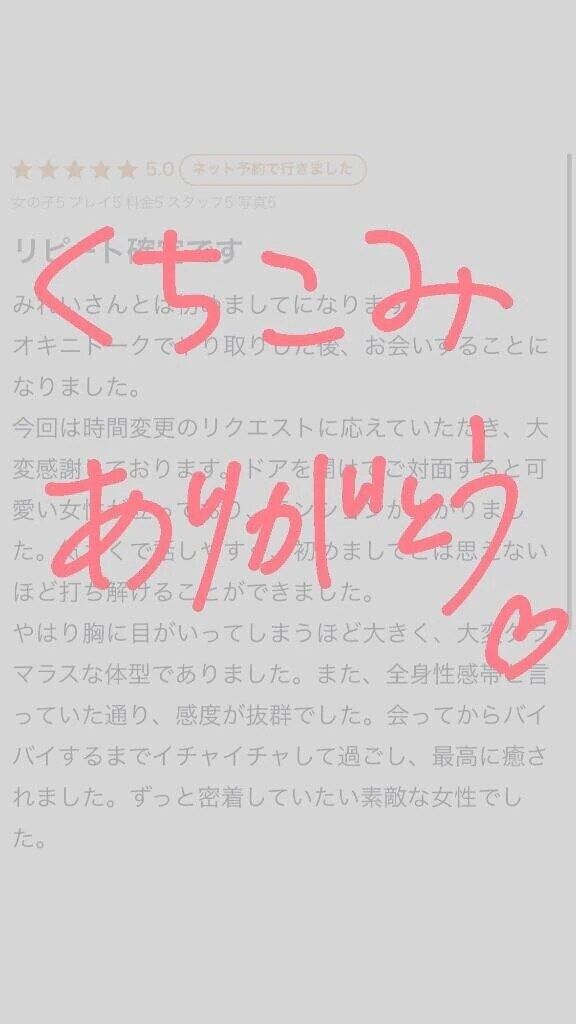 ★★★★★ 5.0 ネット予約で行きました
女の子5 プレイ5 料金5 スタッフ5 写真5
リピート確定です
くちこみ
みれいさんとは初めましてになります
オキニトークでやり取りした後、お会いすることに
なりました。
今回は時間変更のリクエストに応えていただき、大
変感謝しております。ドアを開けてご対面すると可
ありがとう♡
愛い女性が立っており、テンションが上がりまし
た。気さくで話しやすく、初めましてとは思えない
ほど打ち解けることができました。
やはり胸に目がいってしまうほど大きく、大変グラ
マラスな体型でありました。また、全身性感帯と言
っていた通り、感度が抜群でした。会ってからバイ
バイするまでイチャイチャして過ごし、最高に癒さ
れました。ずっと密着していたい素敵な女性でし
た。